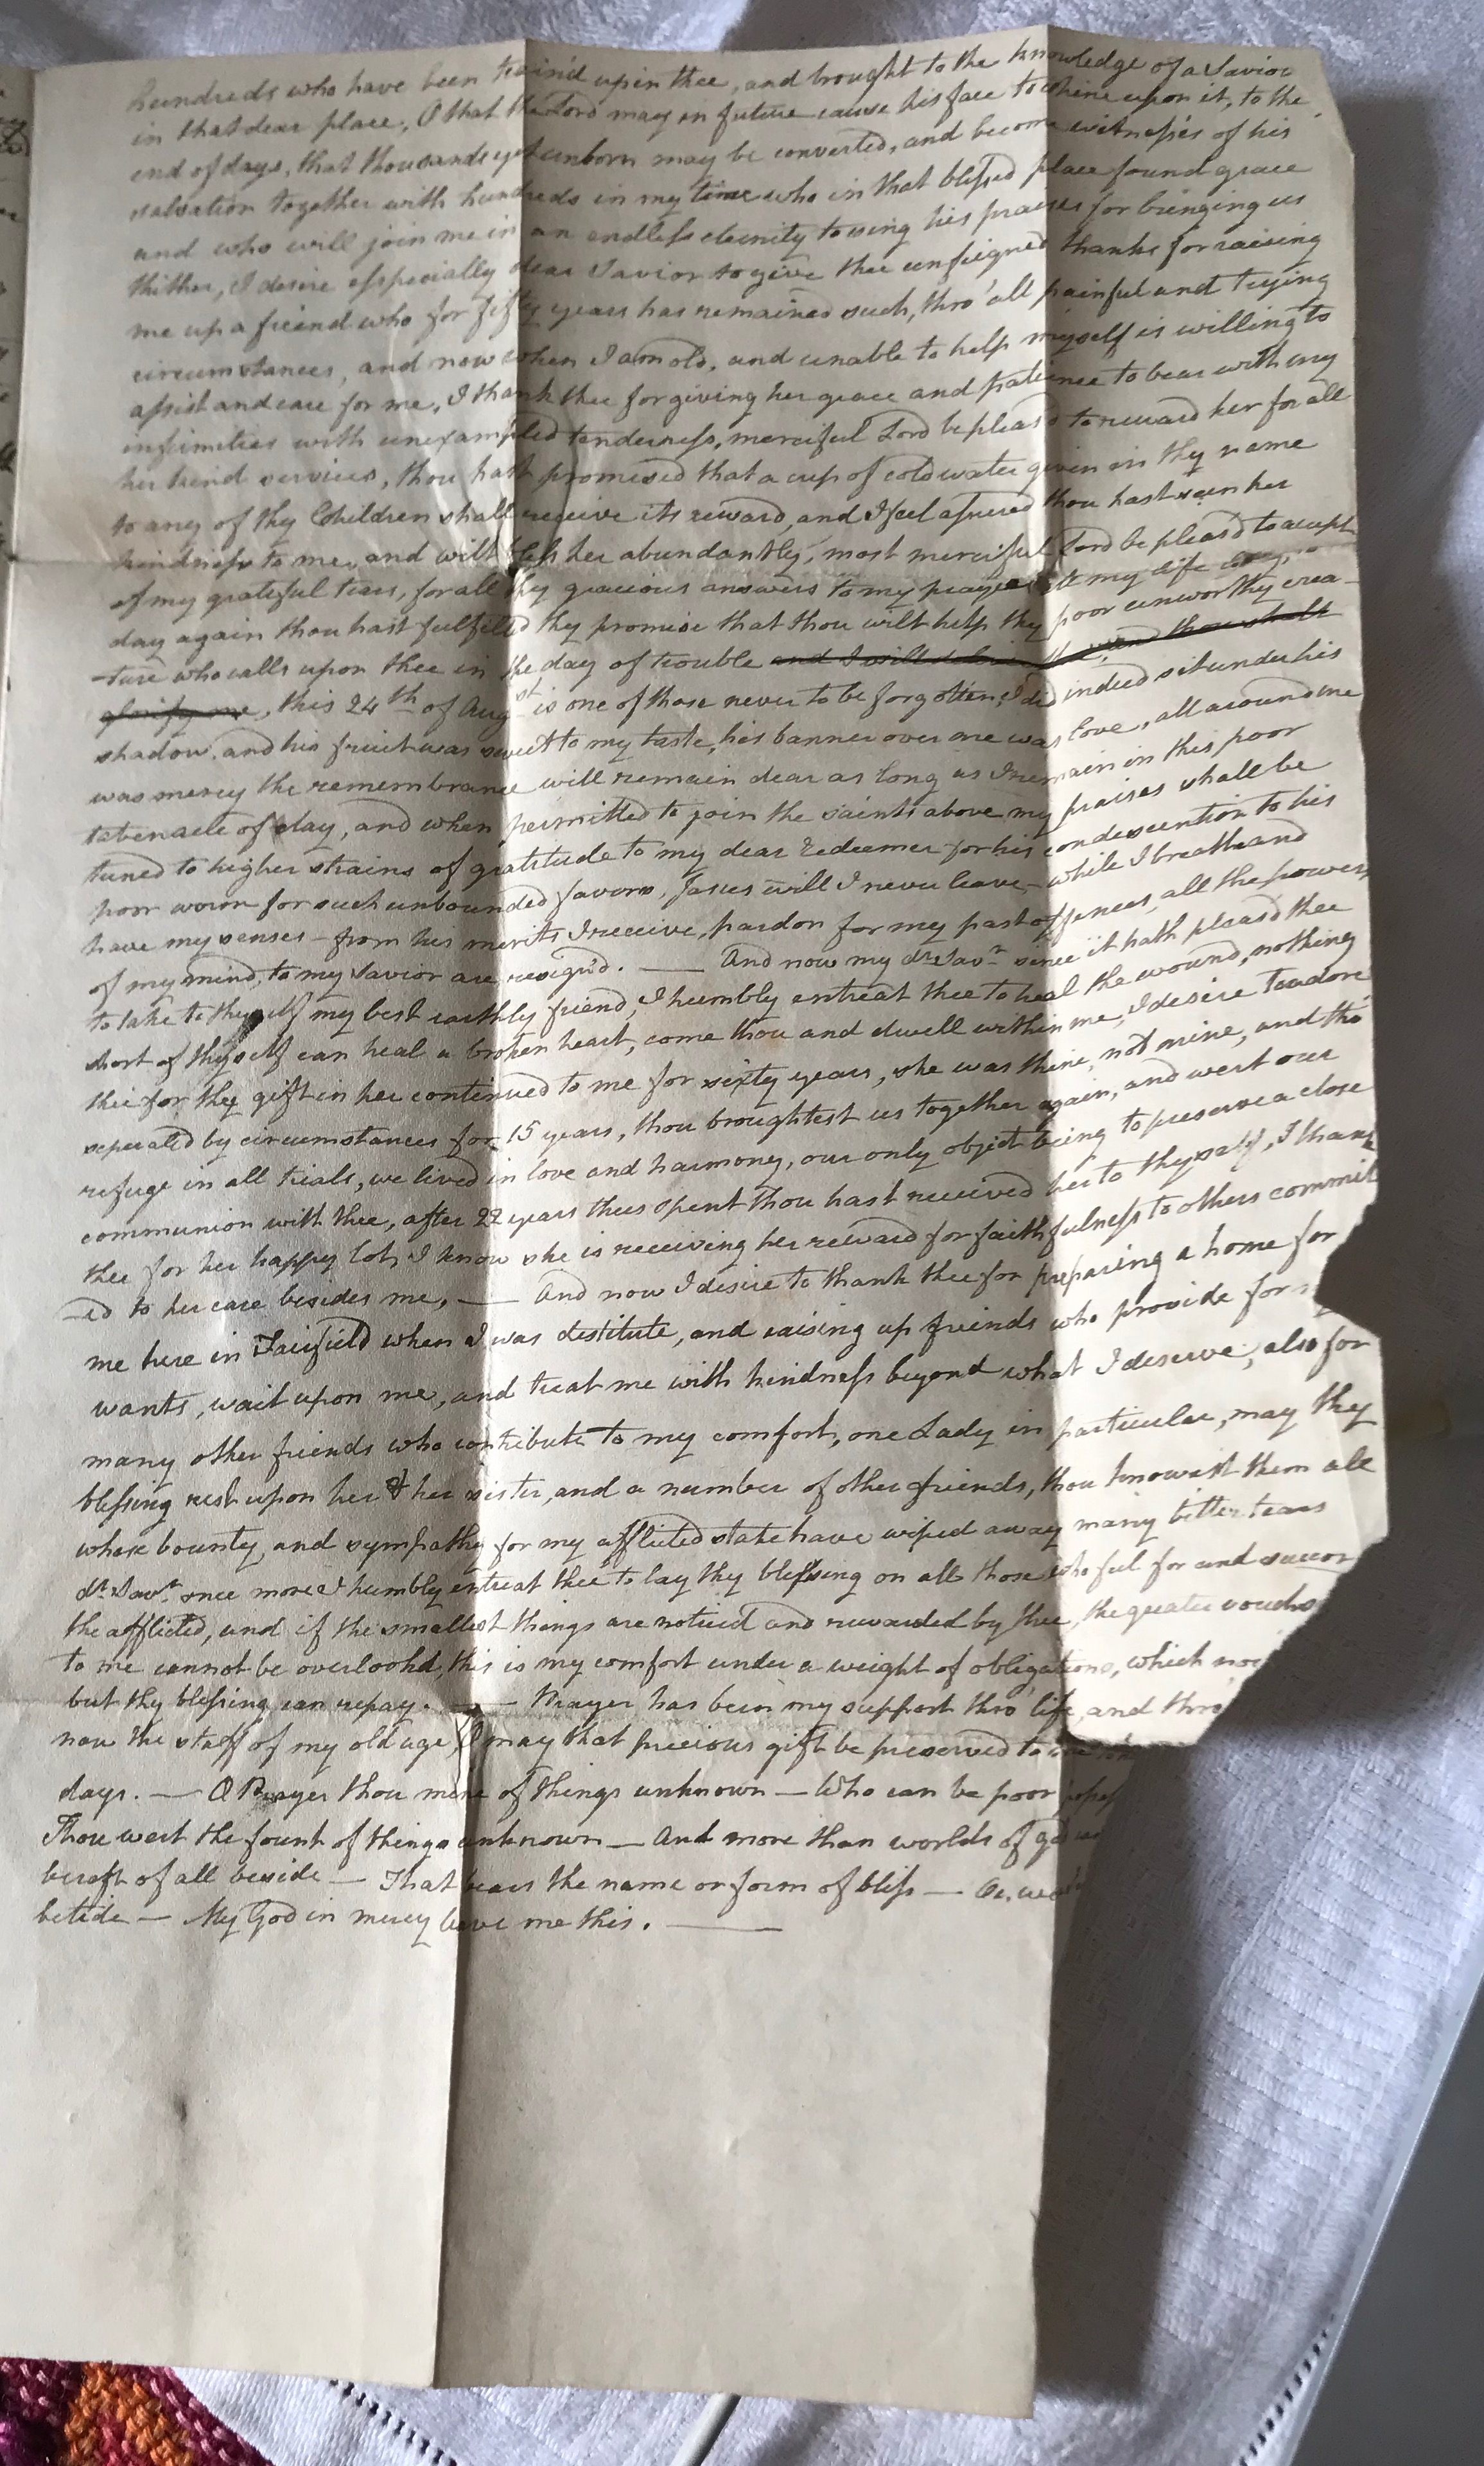 hundreds who have been train'd up in thee, and brought to the knowledge of a Savior
in that dear place, O that the Lord may in future cause his face to shine upon it, to the
end of days, that thousands yet unborn may be converted, and become witnesses of his
salvation together with hundreds in my time who in that blessed place found grace
and who will join me in an endless eternity to sing his praises for bringing us
thither, I desire especially dear Savior to give thee unfeigned thanks for raising
me up a friend who for fifty years has remained such, thro' all painful and trying
circumstances, and now when I am old, and unable to help myself is willing to
assist and care for me, I thank thee for giving her grace and patience to bear with my
infirmities with unexampled tenderness, merciful Lord be pleas'd to reward her for all
her kind services, thou hast promised that a cup of cold water given in thy name
to any of thy Children shall receive its reward, and I feel assured thou hast seen her
kindness to me, and wilt bless her abundantly, most merciful Lord be pleas'd to accept
of my grateful tears, for all thy gracious answers to my prayers my life long,
day again thou hast fulfilled thy promise that thou wilt help thy poor unworthy crea-
-ture who calls upon thee in the day of trouble and I will deliver thee, and thou shalt
glorify me, this 24th of Augst is one of those never to be forgotten, I did indeed sit under his
shadow, and his fruit was sweet to my taste, his banner over me was love, all around me
was mercy the remembrance will remain dear as long as I remain in this poor
tabernacle of clay, and when permitted to join the saints above my praises shall be
tuned to higher strains of gratitude to my dear Redeemer for his condescention to his
poor worm for such unbounded favors, Jesus will I never leave - while I breathe and
have my senses - from his merits I receive, pardon for my past offences, all the powers
of my mind, to my Savior are resign'd. — And now my dr. Savr. since it hath pleas'd thee
to take to thyself my best earthly friend, I humbly entreat thee to heal the wound, nothing
short of thyself can heal a broken heart, come thou and dwell within me, I desire to adore
thee for thy gift in her continued to me for sixty years, she was thine, not mine, and tho'
seperated by circumstances for 15 years, thou broughtest us together again, and wert our
refuge in all trials, we lived in love and harmony, our only object being to preserve a close
communion with thee, after 22 years thus spent thou hast received her to thyself, I thank
thee for her happy lot, I know she is receiving her reward for faithfulness to others commit
-ed to her care besides me, — And now I desire to thank thee for preparing a home for
me here in Fairfield when I was destitute, and raising up friends who provide for
wants, wait upon me, and treat me with kindness beyond what I deserve, also for
many other friends who contribute to my comfort, one Lady in particular, may thy
blessing rest upon her & her sister, and a number of other friends, thou knowest them all
whose bounty, and sympathy for my afflicted state have wiped away many bitter tears
dr. Savr. once more I humbly entreat thee to lay thy blessing on all those who feel for and succor
the afflicted, and if the smallest things are noticed and rewarded by thee, the greater
to me cannot be overlook'd, this is my comfort under a weight of obligations, which
but thy blessing can repay. — Prayer has been my support thro' life, and thro'
now the staff of my old age, O may that precious gift be preserved to
days. — O Prayer thou mine of things unknown — Who can be poor
Thou wert the fount of things unknown — And more than worlds of
bereft of all beside — That bears the name or form of bliss — Or,
betide — My God in mercy leave me this. —